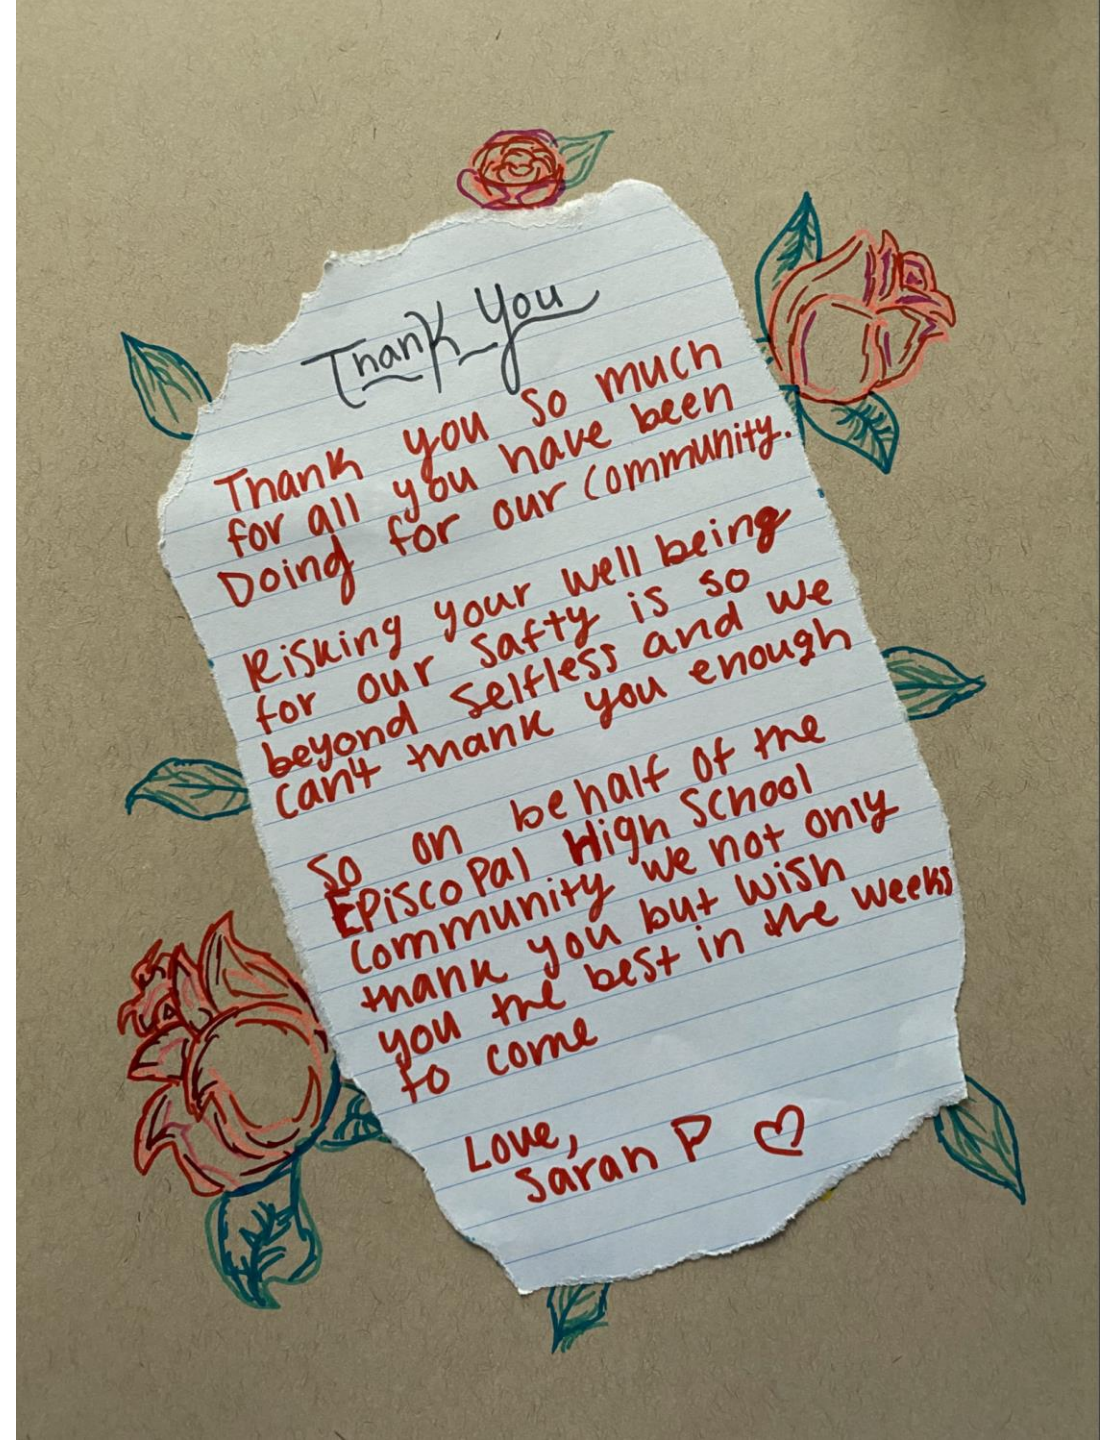 Thank You
Thank you so much
for all you have been
Doing for our community.
Risking your well being
for our safty is so
beyond selfless and we
can't thank you enough
So on behalf of the
Episcopal High School
community we not only
thank you but wish
you the best in the weeks
to come
Love,
Sarah P ♡